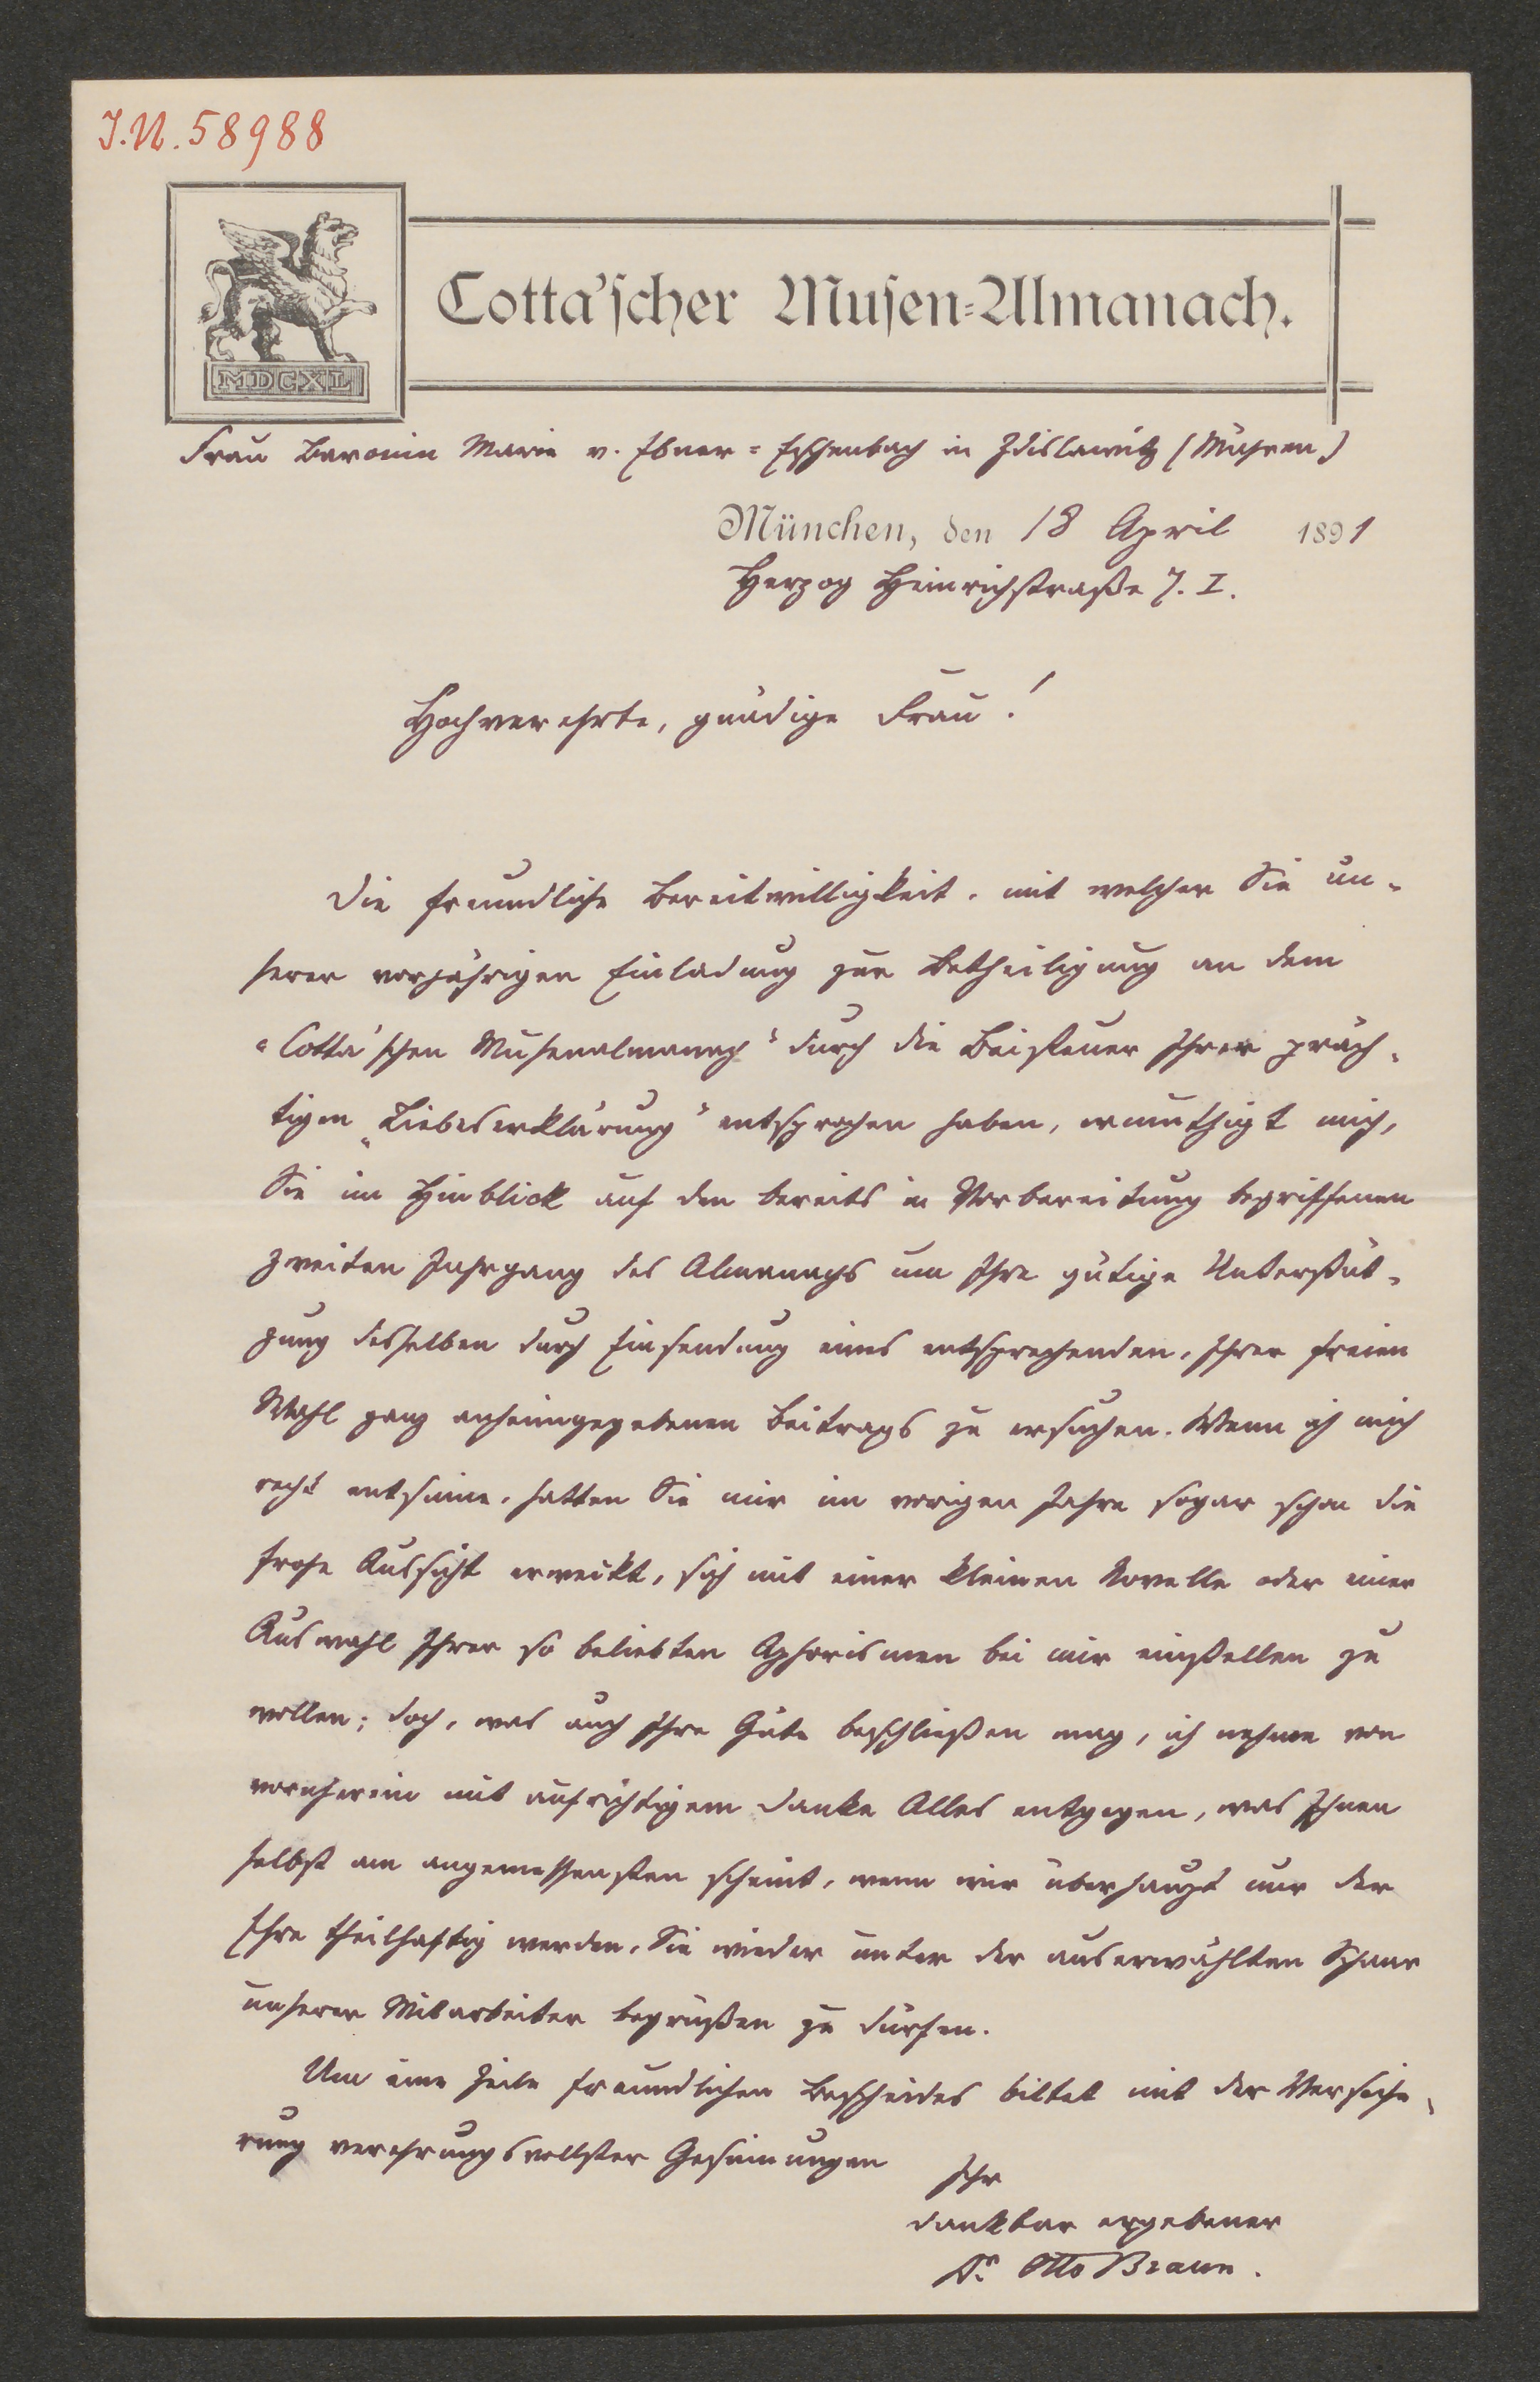 J.N. 58988
MDCXL
Cotta'scher Musen-Almanach.
Frau Baronin Marie v. Ebner-Eschenbach in Zdislawitz (Mähren)
München, den 18 April 1891
Herzog Heinrichstraße 7. I.
Hochverehrte, gnädige Frau!
Die freundliche Bereitwilligkeit, mit welcher Sie un-
serer vorjährigen Einladung zur Betheiligung an dem
"Cotta'schen Musenalmanach" durch die Beisteuer Ihrer präch-
tigen "Liebeserklärung" entsprochen haben, ermuthigt mich,
Sie im Hinblick auf den bereits in Vorbereitung begriffenen
zweiten Jahrgang des Almanachs um Ihre gütige Unterstüt-
zung desselben durch Einsendung eines entsprechenden, Ihrer freien
Wahl ganz anheimgegebenen Beitrags zu ersuchen. Wenn ich mich
recht entsinne, hatten Sie mir im vorigen Jahre sogar schon die
frohe Aussicht erweckt, sich mit einer kleinen Novelle oder einer
Auswahl Ihrer so beliebten Aphorismen bei mir einstellen zu
wollen; doch, was auch Ihre Güte beschließen mag, ich nehme von
vornherein mit aufrichtigem Danke Alles entgegen, was Ihnen
selbst am angemessensten scheint, wenn wir überhaupt nur der
Ehre theilhaftig werden, Sie wieder unter der auserwählten Schaar
unserer Mitarbeiter begrüßen zu dürfen.
Um eine Zeile freundlichen Bescheides bittet mit der Versiche-
rung verehrungsvollster Gesinnungen
Ihr
dankbar ergebener
Dr. Otto Braun.